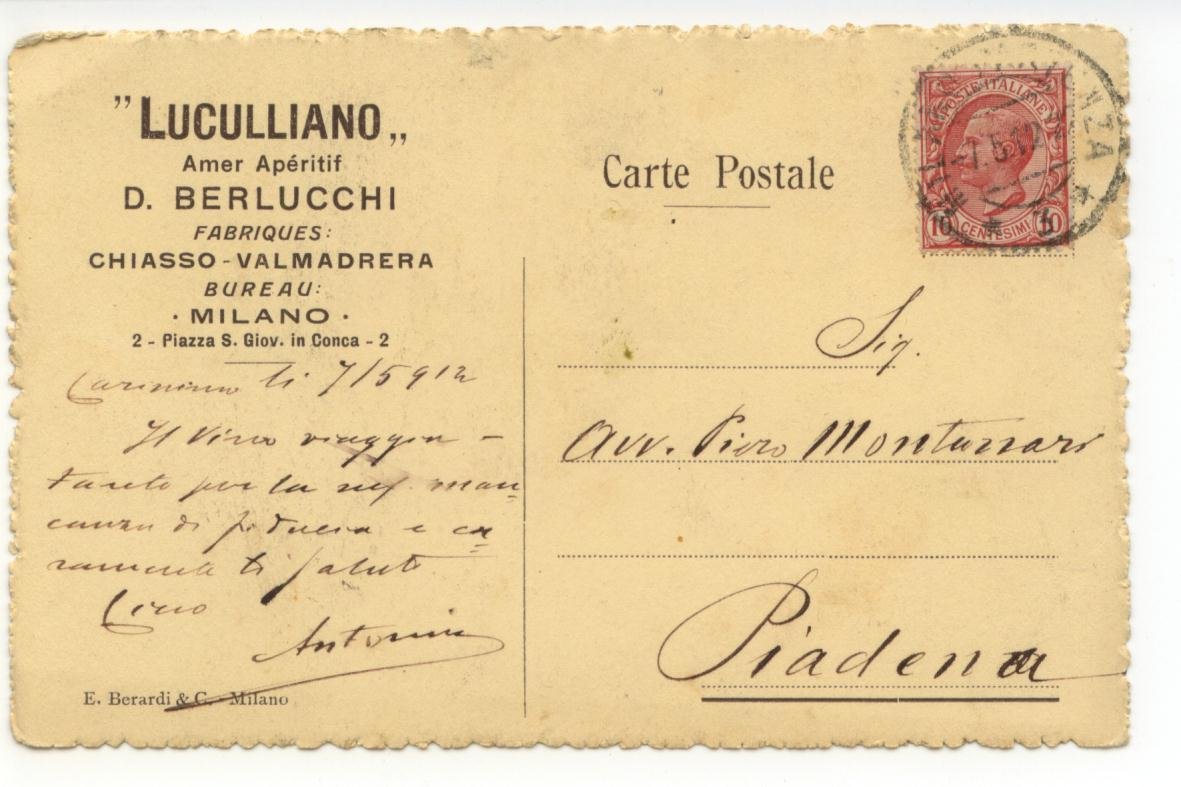 "LUCULLIANO„
Amer Apéritif
D. BERLUCCHI
FABRIQUES:
CHIASSO - VALMADRERA
BUREAU:
· MILANO ·
2 - Piazza S. Giov. in Conca - 2
li 7/5 912
Il Vino viaggia -
tanto per la man=
canza di fiducia e ca=
ramente ti saluto
Antonini
E. Berardi & C. - Milano
Carte Postale
POSTE ITALIANE
10 CENTESIMI 10
Sig.
Avv. Piero Montanari
Piadena